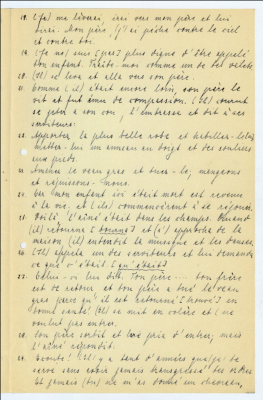 18. (Je) me lèverai, irai vers mon père et lui
dirai. Mon père, (j') ai péché contre le ciel
et contre toi.
19. (Je ne) suis [pas] plus digne d'être appelé
ton enfant. Traite-moi comme un de tes valets
20. (Il) se leva et alla vers son père.
Comme (il) était encore loin, son père le
vit et fut ému de compassion. (Il) courut
se jeter à son cou, l'embrassa et dit à ses
serviteurs:
Apportez la plus belle robe et habillez-le
mettez-lui un anneau au doigt et des souliers
aux pieds.
Amenez le veau gras et tuez-le, mangeons
et réjouissons-nous.
24. Car mon enfant ici était mort est revenu
à la vie. et (ils) commencèrent à se réjouir.
Voilà l'aîné était dans les champs. Quand
(il) retourne [tourne] et (s') approche de la
maison (il) entendit la musique et les danses.
(Il) appela un des serviteurs et lui demanda
ce que c'était [qu'était]
Celui-ci lui dit. Ton père.... ton frère
est de retour et ton père a tué le veau
gras parce qu'il est retourné
bonne santé. (Il) se mit en colère et (ne
voulut pas entrer.
28. Son père sortit et le prie d'entrer, mais
l'aîné répondit.
29. Écoute! (Il) y a tant d'années que (je) te
sers sans avoir jamais transgressé tes ordres
et jamais (tu) ne m'as donné un chevreau,